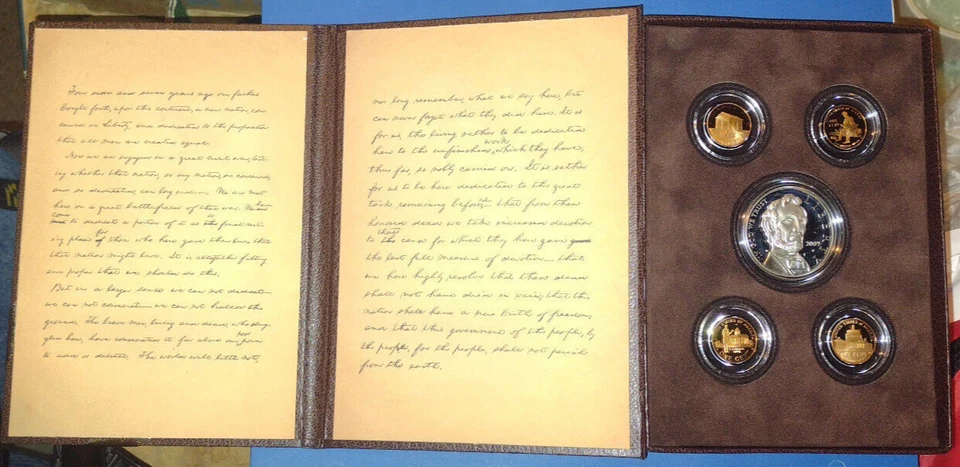 Four score and seven years ago our fathers
brought forth, upon this continent, a new nation, con-
ceived in Liberty, and dedicated to the proposition
that all men are created equal.
Now we are engaged in a great civil war, test-
ing whether that nation, or any nation, so conceived,
and so dedicated, can long endure. We are met
here on a great battlefield of that war. We have
come
to dedicate a portion of it as the final rest-
for
ing place of those who here gave their lives that
that nation might live. It is altogether fitting
and proper that we should do this.
But in a larger sense we can not dedicate
we can not consecrate we can not hallow this
ground. The brave men, living and dead, who strug-
gled here, have consecrated it far above our poor power
to add or detract. The world will little note,
nor long remember, what we say here, but
can never forget what they did here. It is
for us, the living, rather to be dedicated
work
here to the unfinished which they have,
thus far, so nobly carried on. It is rather
for us to be here dedicated to the great
us
task remaining before that from these
honored dead we take increased devotion
that
to the cause for which they here gave gave
the last full measure of devotion that
we here highly resolve that these dead
shall not have died in vain; that this
nation shall have a new birth of freedom;
and that this government of the people, by
the people, for the people, shall not perish
from the earth.
WE TRUST
2009
ONE CENT
ONE CENT